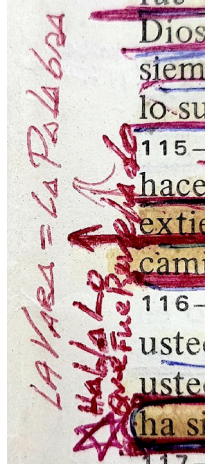 LA VARA = LA PALABRA
HABLA LO
QUE FUE Revelado
Dios
siem
lo su
115–
hace
extie
cami
116–
uste
uste
ha si
117–